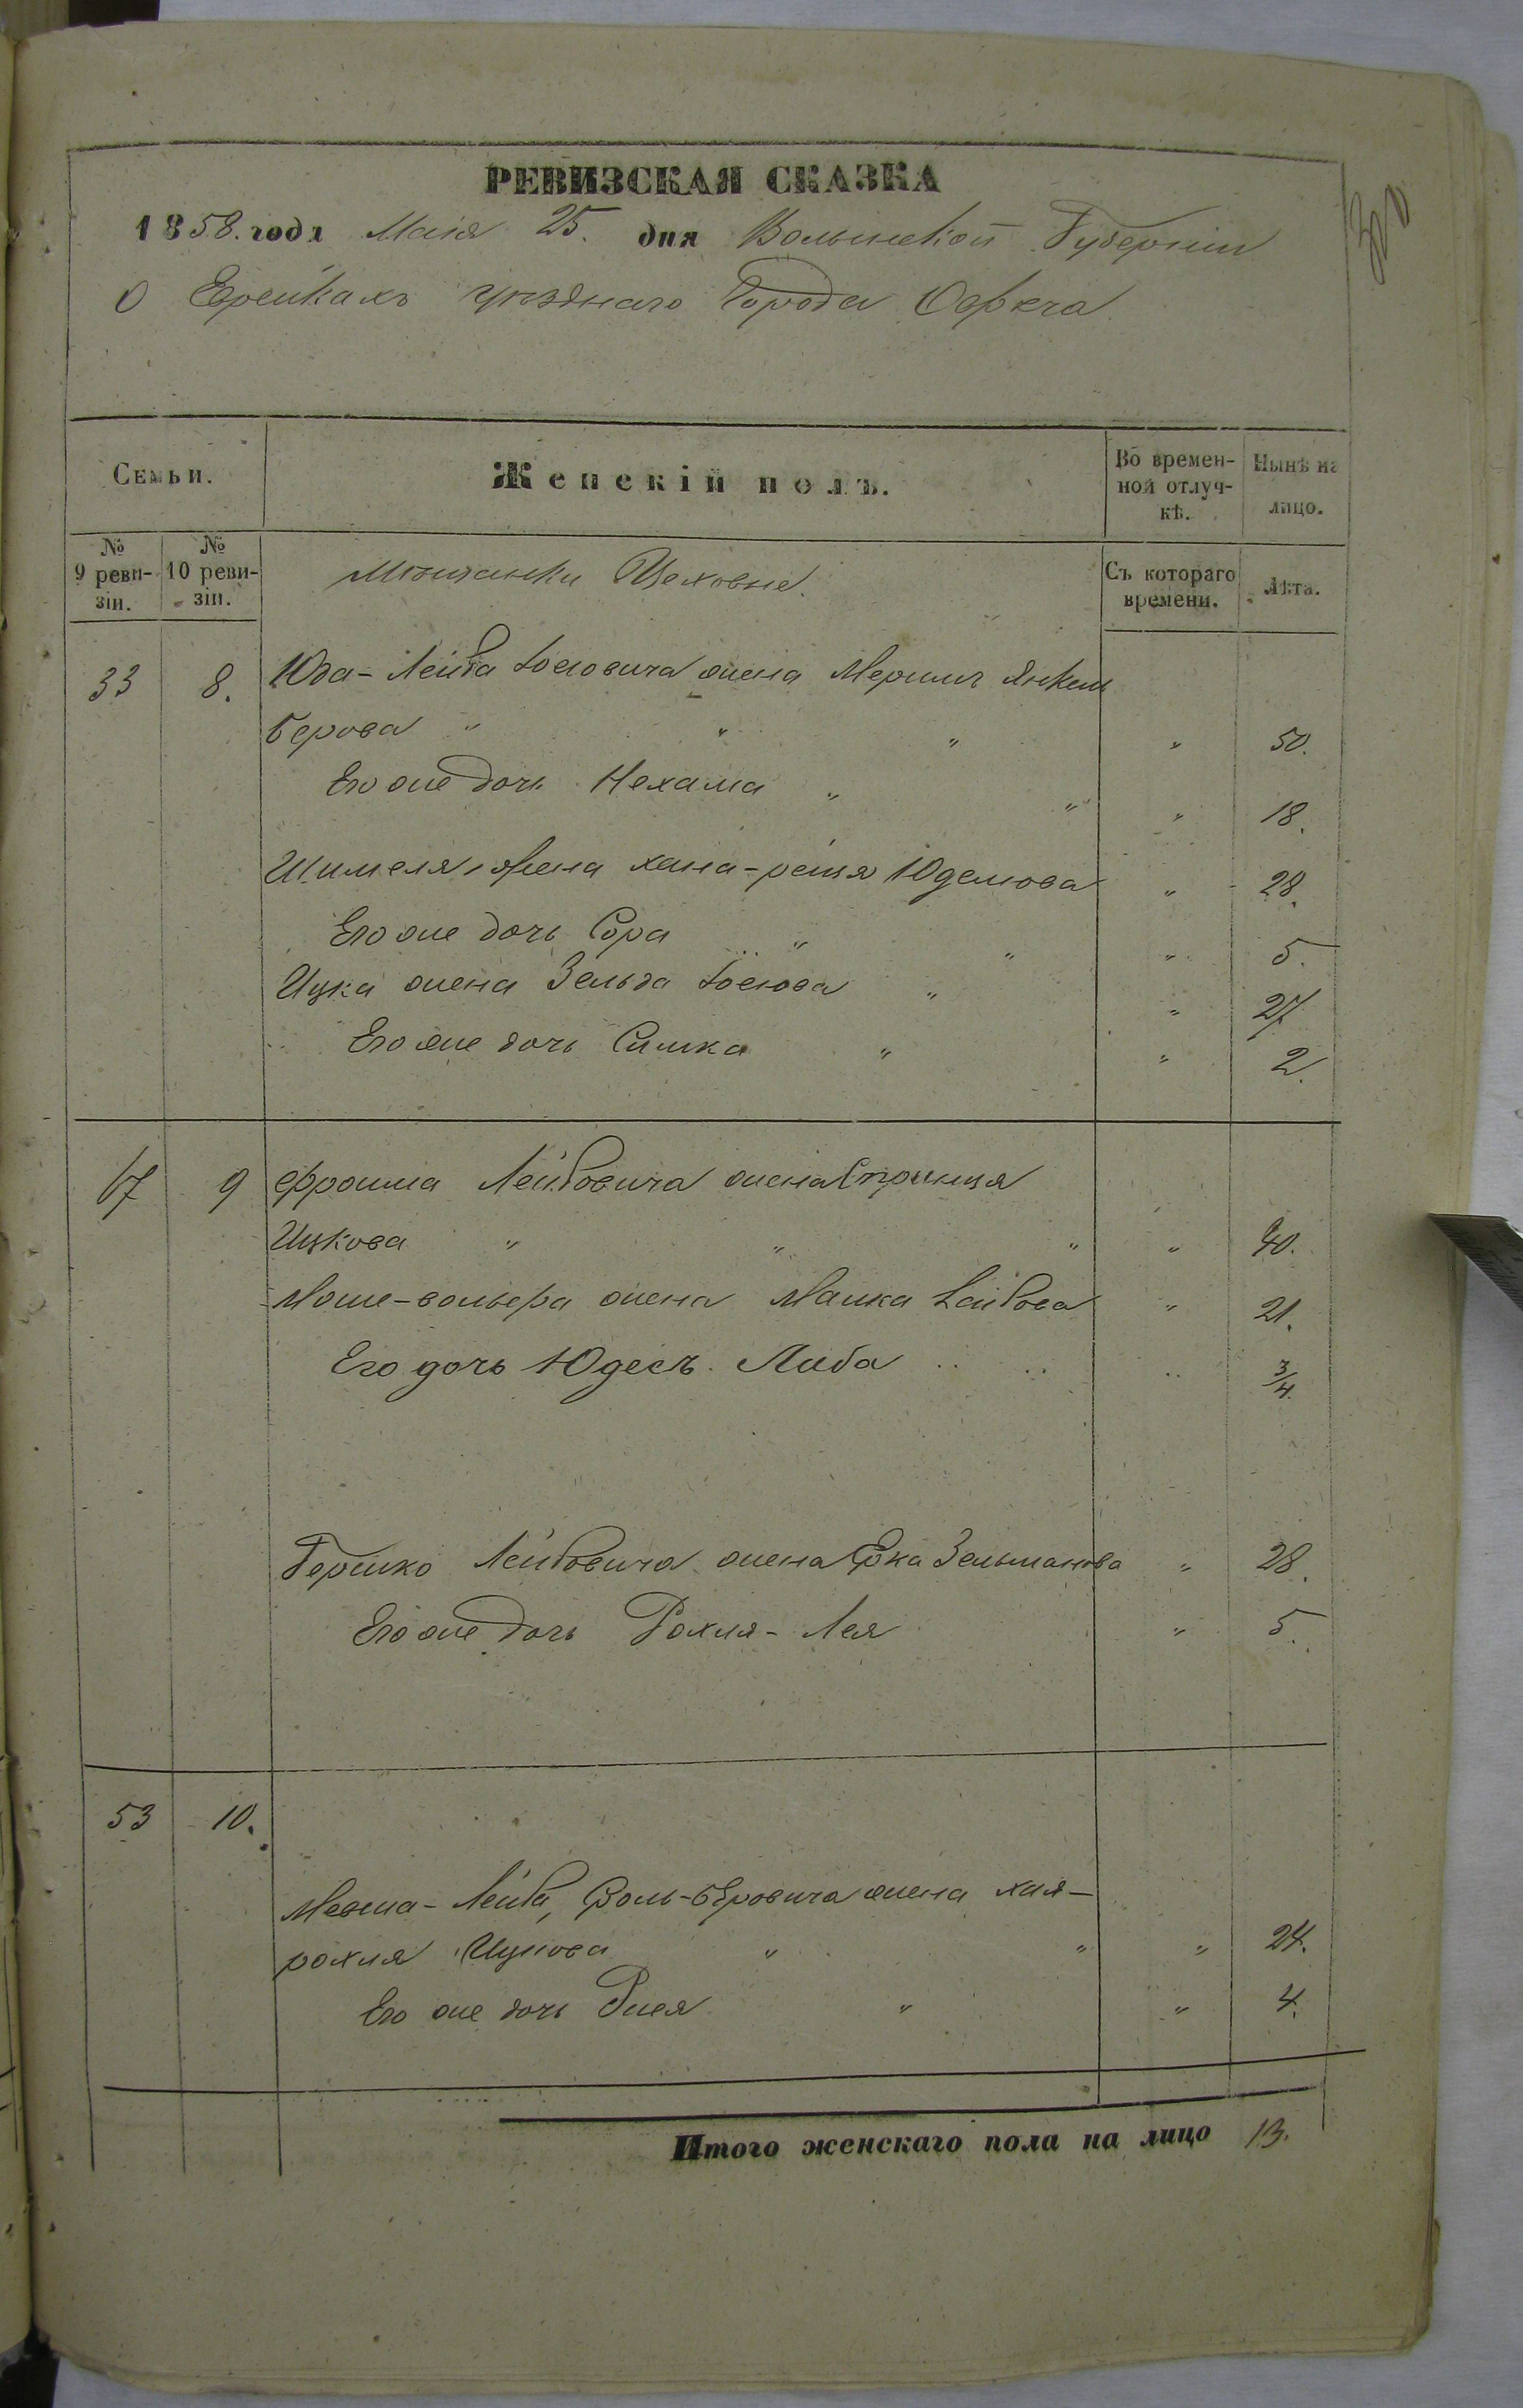 РЕВИЗСКАЯ СКАЗКА
1858. года Маія 25. дня Волынской Губерніи
О Евреихахъ уѣзднаго Города Овруча
Семьи.
Женскій полъ.
Во времен-
ной отлуч-
кѣ.
Нынѣ на
лицо.
№
9 реви-
зіи.
№
10 реви-
зіи.
Мѣщанки Цеховые.
Съ котораго
времени.
Лѣта.
33 8. Юда-Лейба Іосіовича жена Меримъ Янкель
Берова " " " " 50.
Его же дочь Нехама " " " 18.
Шимеля, жена хана-рейзя Юделіова " 28.
Его же дочь Сора " " " 5.
Ицка жена Зельда Іосіова " " 27
Его же дочь Симка " " 2.
67 9 Фроима Лейбовича жена Стрынця
Ицкова " " " " 40.
Моше-вольфа жена Малка Лейбова " 21.
Его дочь Юдесъ. Либа " " " 3/4.
Гершко Лейбовича жена Ента Зельманова " 28.
Его же дочь Рохля-Лея " 5.
53 10.
Мошка-Лейба, Воль-Беровича жена хая-
рохля Ицкова " " " 24.
Его же дочь Рися " " 4.
Итого женскаго пола на лицо 13.